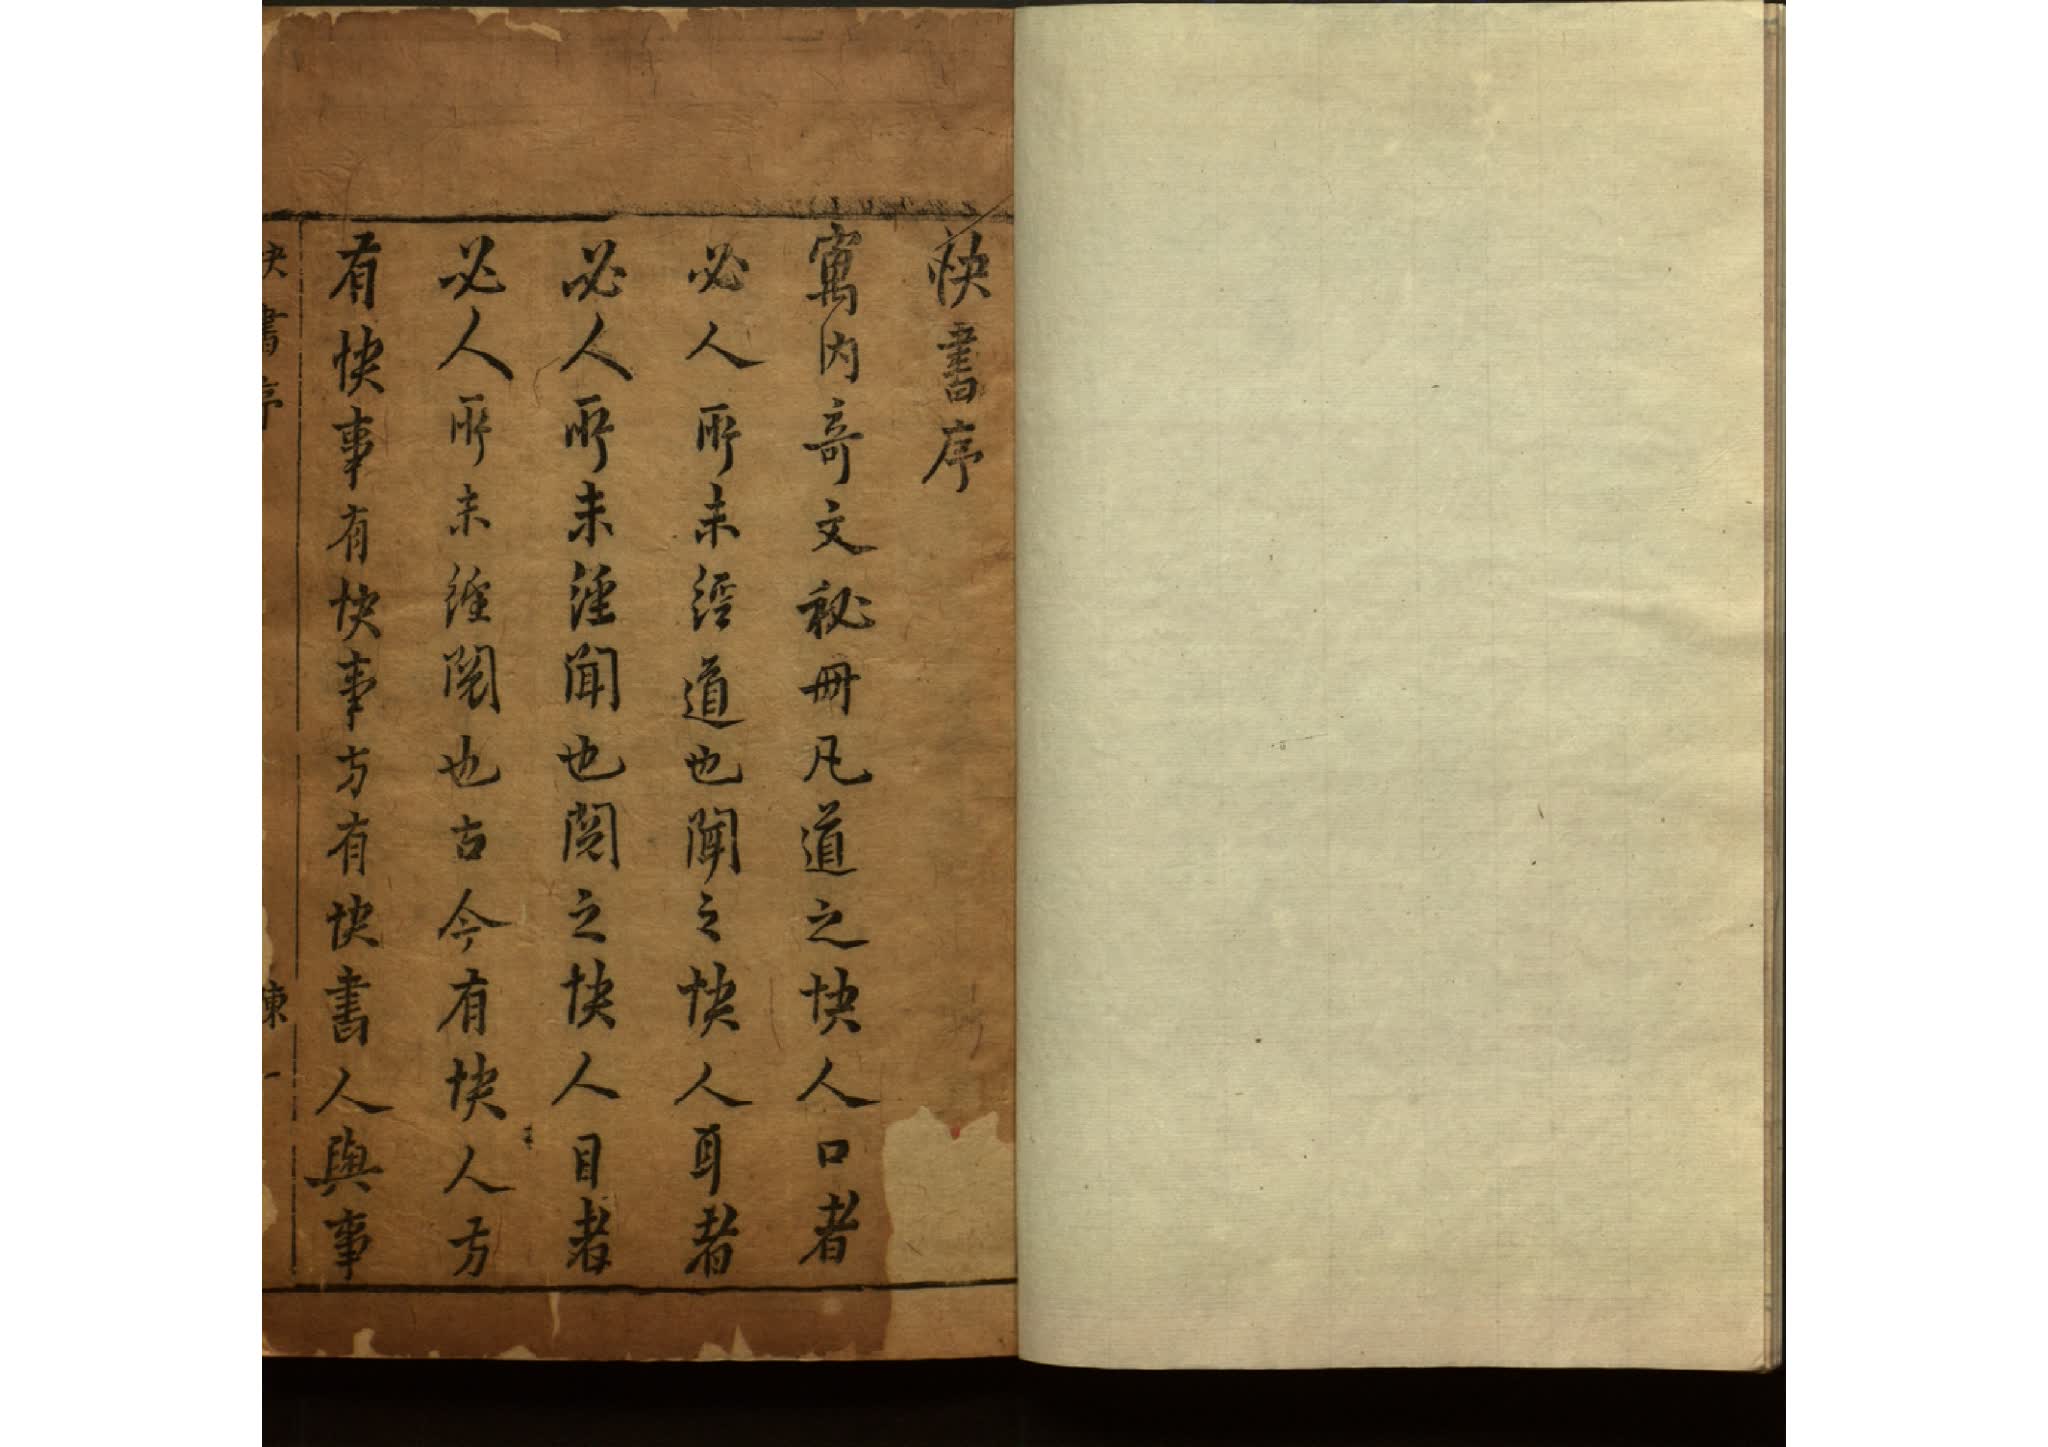 快書序
寓內奇文秘冊凡道之快人口者
必人所未經道也聞之快人耳者
必人所未經聞也閱之快人目者
必人所未經閱也古今有快人方
有快事有快事方有快書人與事
快書序 陳 一